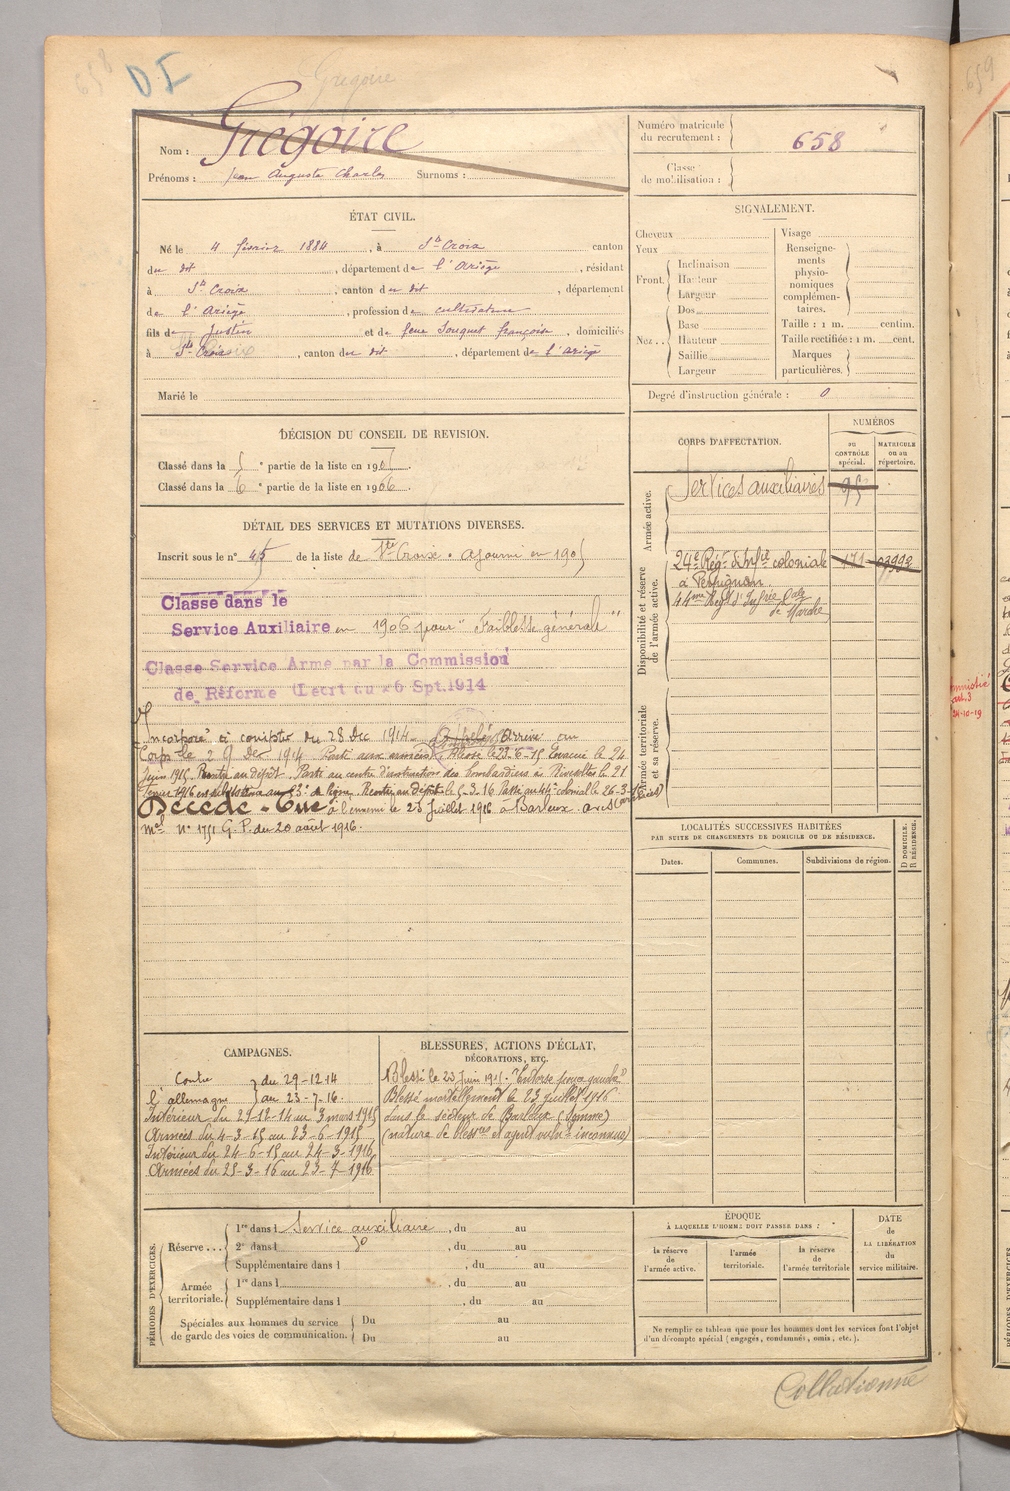 658
D I
Grégoire
Nom : Grégoire
Prénoms : Jean Auguste Charles Surnoms :
Numéro matricule du recrutement : 658
Classe de mobilisation :
ÉTAT CIVIL.
Né le 4 février 1884, à Ste Croix canton
du dit, département de l'Ariège, résidant
à Ste Croix, canton du dit, département
de l'Ariège, profession de cultivateur
fils de Justin et de feue Souquet françoise, domiciliés
à Ste Croix, canton du dit, département de l'Ariège
Marié le
SIGNALEMENT.
Cheveux
Yeux
Front. Inclinaison
Hauteur
Largeur
Nez.. Dos
Base
Hauteur
Saillie
Largeur
Visage
Renseigne-
ments
physio-
nomiques
complémen-
taires.
Taille : 1 m. centim.
Taille rectifiée : 1 m. cent.
Marques
particulières.
Degré d'instruction générale : 0
DÉCISION DU CONSEIL DE REVISION.
Classé dans la 5e partie de la liste en 1905.
Classé dans la 6e partie de la liste en 1906.
DÉTAIL DES SERVICES ET MUTATIONS DIVERSES.
Inscrit sous le no 45 de la liste de Ste Croix. ajourné en 1905
Classé dans le
Service Auxiliaire en 1906 pour "Faiblesse générale"
Classé Service Armé par la Commission
de Réforme (Décret du 26 Spt. 1914
Incorporé à compter du 28 Dec 1914. Arrivé au
Corps le 29 Dec 1914 Parti aux armées Blessé le 23-6-15 Evacué le 24
Juin 1915. Rentré au dépôt. Parti au centre d'instruction des bombardiers à Rivesaltes le 21
Rentré au dépôt le 5-3-16 Passé au 44e colonial le 26-3-
Décédé - Tué à l'ennemi le 23 Juillet 1916 à Barleux avis
mel No 1751 G. P. du 20 août 1916.
CORPS D'AFFECTATION.
NUMÉROS
au CONTRÔLE spécial.
MATRICULE ou au répertoire.
Armée active.
Services auxiliaires 95
Disponibilité et réserve de l'armée active.
24e Rég. d'Infie coloniale 171 03992
à Perpignan.
44me Regt d'Infrie Cole
de Marche
Armée territoriale et sa réserve.
LOCALITÉS SUCCESSIVES HABITÉES
PAR SUITE DE CHANGEMENTS DE DOMICILE OU DE RÉSIDENCE.
Dates. Communes. Subdivisions de région.
D DOMICILE.
R RÉSIDENCE.
CAMPAGNES.
Contre l'allemagne du 29-12-14
au 23-7-16.
Intérieur du 29-12-14 au 3 mars 1915
Armées du 4-3-15 au 23-6-1915
Intérieur du 24-6-15 au 24-3-1916
Armées du 25-3-16 au 23-7-1916
BLESSURES, ACTIONS D'ÉCLAT,
DÉCORATIONS, ETC.
Blessé le 23 Juin 1915. "Entorse genou gauche"
Blessé mortellement le 23 juillet 1916
dans le secteur de Barleux (Somme)
(nature de blessre et agent vulnt inconnus)
PÉRIODES D'EXERCICES.
Réserve... 1re dans l Service auxiliaire, du au
2e dans l do, du au
Supplémentaire dans l, du au
Armée territoriale. 1re dans l, du au
Supplémentaire dans l, du au
Spéciales aux hommes du service
de garde des voies de communication. Du au
Du au
ÉPOQUE
À LAQUELLE L'HOMME DOIT PASSER DANS :
la réserve de l'armée active.
l'armée territoriale.
la réserve de l'armée territoriale
DATE
de
LA LIBÉRATION
du
service militaire.
Ne remplir ce tableau que pour les hommes dont les services font l'objet
d'un décompte spécial (engagés, condamnés, omis, etc.).
Collationné
659
amnistié
art. 3
24-10-19